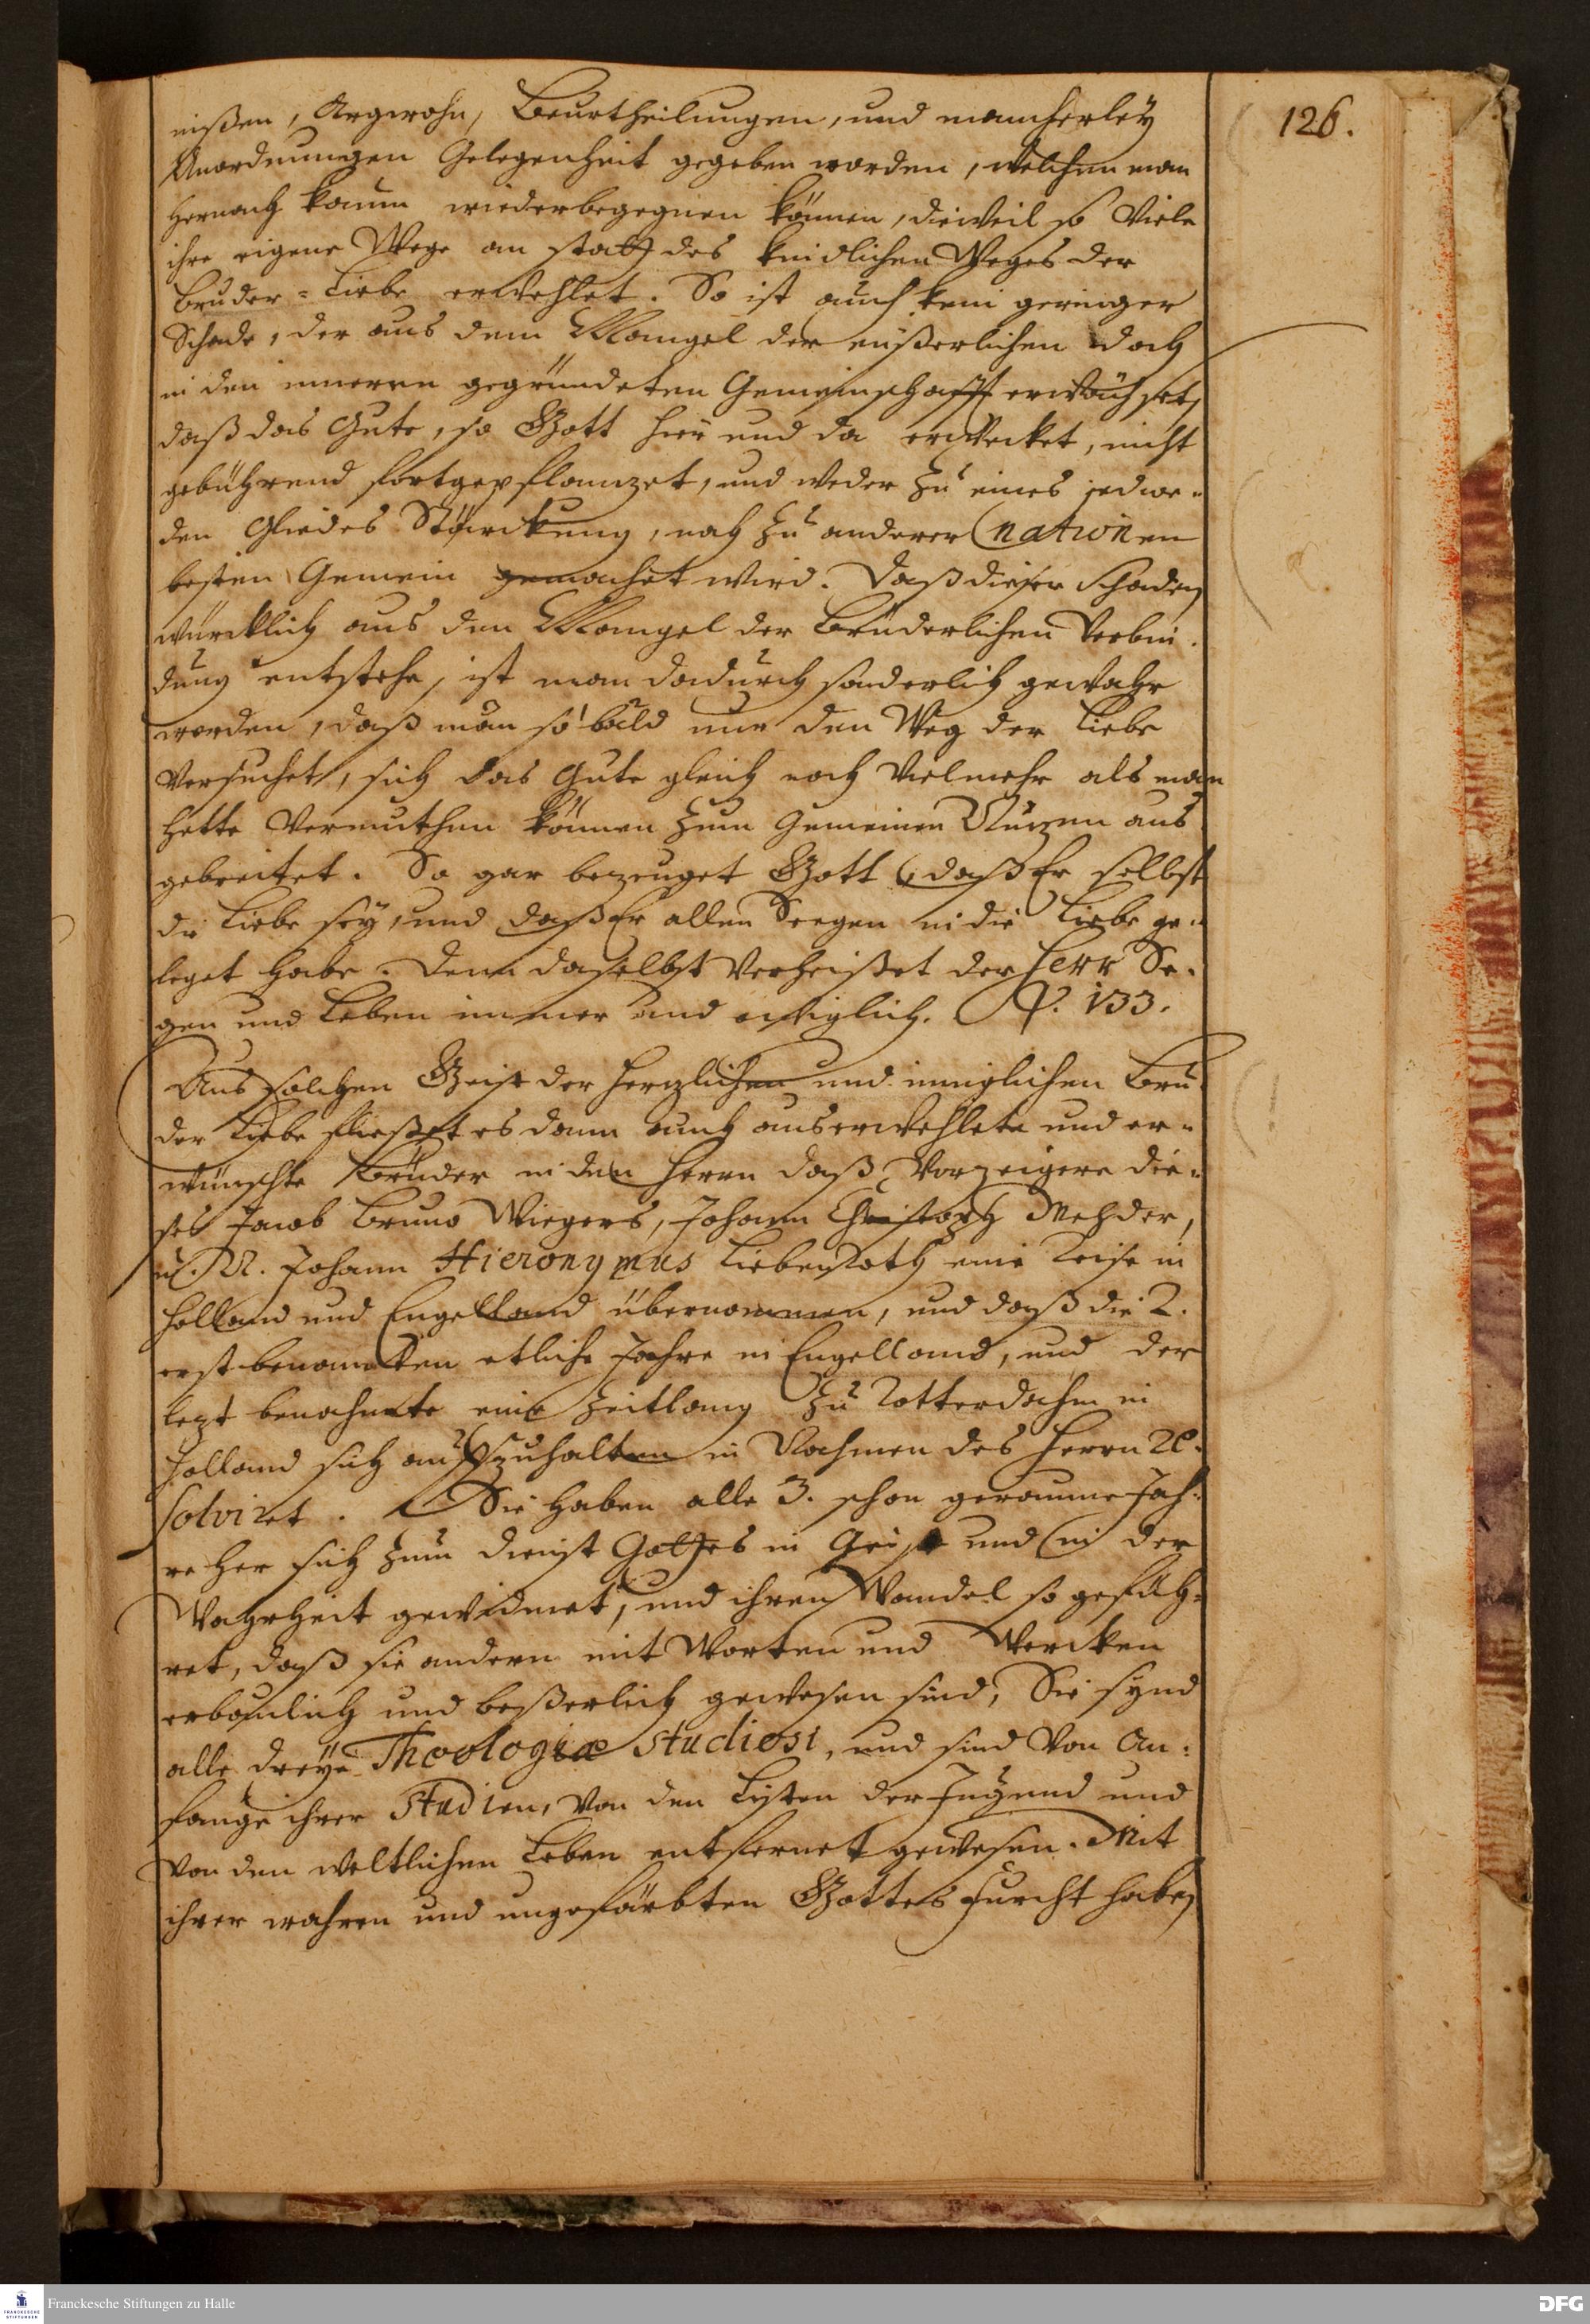 126.
nißen, Argwohn, Beurtheilungen, und mancherley
Unordnungen Gelegenheit gegeben worden, welchen man
hernach kaum wiederbegegnen können, dieweil so viele
ihre eigene Wege an statt des kindlichen Weges der
Bruder-Liebe erwehlet. So ist auch kein geringer
Schade, der aus dem Mangel der eußerlichen doch
in den inneren gegründeten Gemeinschafft erwächset,
daß das Gute, so Gott hier und da erwecket, nicht
gebührend fortgepflanzet, und weder zu eines jedwe-
den Gliedes Stärckung, noch zu anderer nationen
besten Gemein gemachet wird. Daß dieser Schaden
würcklich aus den Mangel der Brüderlichen Verbin-
dung entstehe, ist man dadurch sonderlich gewahr
worden, daß man so bald nur den Weg der Liebe
versuchet, sich das Gute gleich noch vielmehr als man
hette vermuthen können zum Gemeinen Nutzen aus
gebreitet. So gar bezeuget Gott, daß Er selbst
die Liebe sey, und daß Er allen Seegen in die Liebe ge-
leget habe. Denn daselbst verheißet der Herr Se-
gen und Leben immer und ewiglich. Ps. 133.
Aus solchen Geist der herzlichen und inniglichen Bru-
der Liebe fließet es dann auch auserwehlete und er-
wünschte Brüder in den Herrn daß Vorzeigere die-
ses Jacob Bruno Wiegers, Johann Christoph Mehder,
u. M. Johann Hieronymus Liebenroth eine Reise in
Holland und Engelland übernommen, und daß die 2.
erst benannten etliche Jahre in Engelland, und der
lezt benahmte eine Zeitlang zu Rotterdahm in
Holland sich auffzuhalten in Nahmen des Herrn Re-
solviret. Sie haben alle 3. schon geraume Jah-
re her sich zum Dienst Gottes in Geist und in der
Wahrheit gewidmet, und ihren Wandel so gefüh-
ret, daß sie andern mit Worten und Wercken
erbaulich und beßerlich gewesen sind, Sie synd
alle dreye Theologiæ Studiosi, und sind von An-
fange ihrer Studien, von den Lüsten der Jugend und
von den weltlichen Leben entfernet gewesen. Mit
ihrer wahren und ungefärbten Gottes Furcht haben
Franckesche Stiftungen zu Halle
DFG